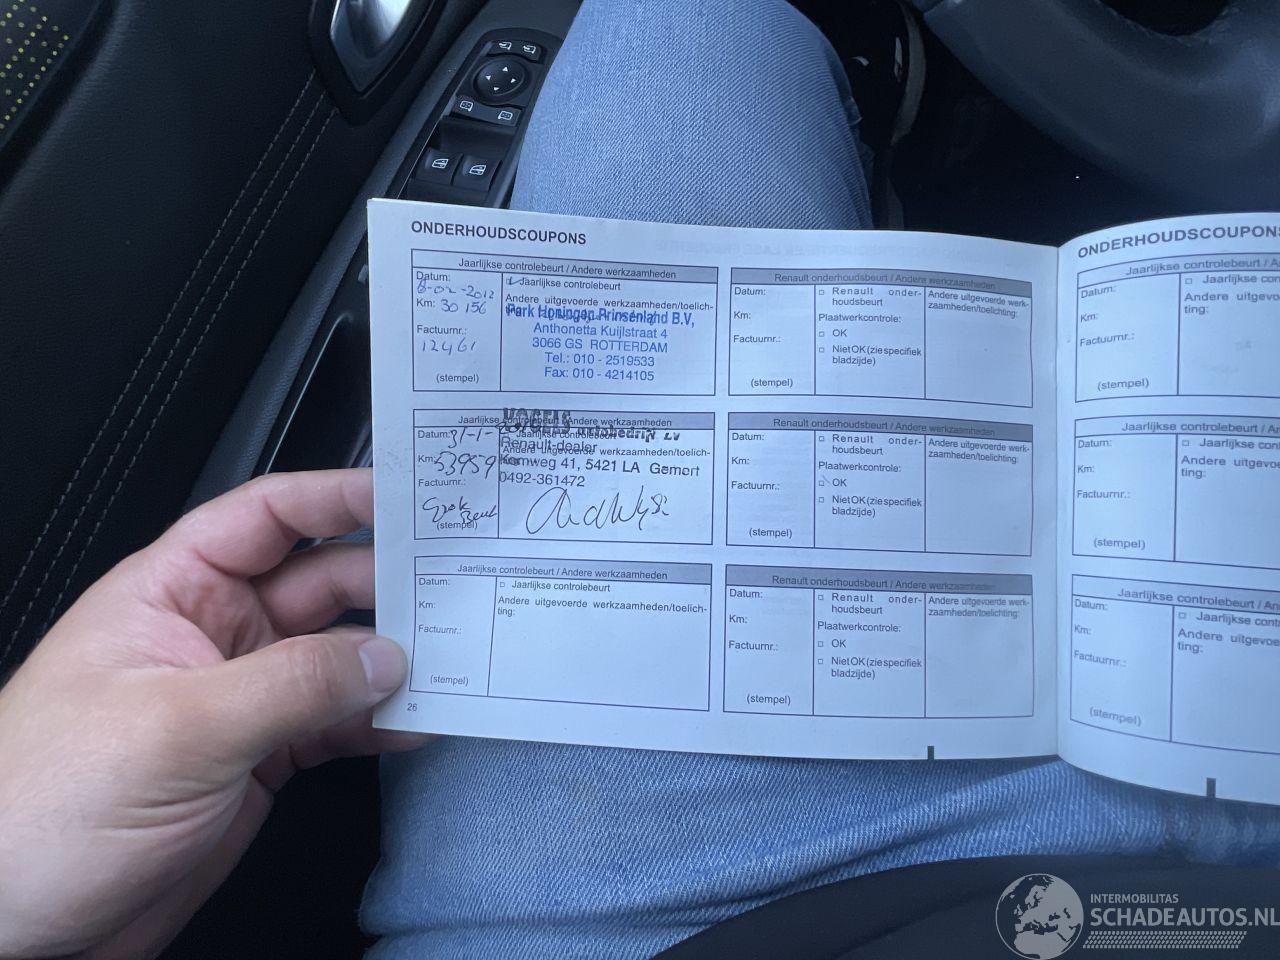 ONDERHOUDSCOUPONS
Jaarlijkse controlebeurt / Andere werkzaamheden
Datum:
-02-2012
Km: 30 156
Factuurnr.:
12461
(stempel)
Jaarlijkse controlebeurt
Andere uitgevoerde werkzaamheden/toelich-
Park Honingen Prinsenland B.V,
Anthonetta Kuijlstraat 4
3066 GS ROTTERDAM
Tel.: 010 - 2519533
Fax: 010 - 4214105
Renault onderhoudsbeurt / Andere werkzaamheden
Datum:
Km:
Factuurnr.:
(stempel)
Renault onder-
houdsbeurt
Plaatwerkcontrole:
OK
Niet OK (zie specifiek
bladzijde)
Andere uitgevoerde werk-
zaamheden/toelichting:
Jaarlijkse controlebeurt / Andere werkzaamheden
Datum: 31-1-
Km: 53959
Factuurnr.:
(stempel)
Jaarlijkse controlebeurt
Andere uitgevoerde werkzaamheden/toelich-
VOGELS
Renault-dealer
Komweg 41, 5421 LA Gemert
0492-361472
Renault onderhoudsbeurt / Andere werkzaamheden
Datum:
Km:
Factuurnr.:
(stempel)
Renault onder-
houdsbeurt
Plaatwerkcontrole:
OK
Niet OK (zie specifiek
bladzijde)
Andere uitgevoerde werk-
zaamheden/toelichting:
Jaarlijkse controlebeurt / Andere werkzaamheden
Datum:
Km:
Factuurnr.:
(stempel)
Jaarlijkse controlebeurt
Andere uitgevoerde werkzaamheden/toelich-
ting:
Renault onderhoudsbeurt / Andere werkzaamheden
Datum:
Km:
Factuurnr.:
(stempel)
Renault onder-
houdsbeurt
Plaatwerkcontrole:
OK
Niet OK (zie specifiek
bladzijde)
Andere uitgevoerde werk-
zaamheden/toelichting:
26
ONDERHOUDSCOUPONS
Jaarlijkse controlebeurt / A
Datum:
Km:
Factuurnr.:
(stempel)
Jaarlijkse co
Andere uitgevo
ting:
Jaarlijkse controlebeurt / An
Datum:
Km:
Factuurnr.:
(stempel)
Jaarlijkse cont
Andere uitgevo
ting:
Jaarlijkse controlebeurt / An
Datum:
Km:
Factuurnr.:
(stempel)
Jaarlijkse cont
Andere uitgevo
ting:
INTERMOBILITAS
SCHADEAUTOS.NL